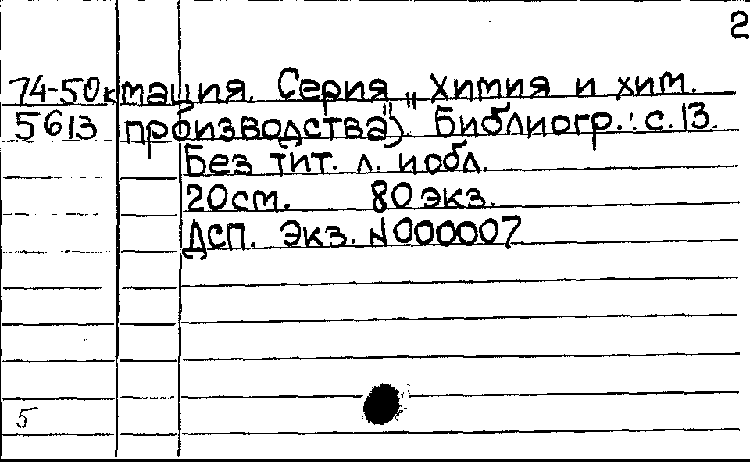 2
74-50к мация. Серия „Химия и хим.
5613 производства"). Библиогр.: с.13.
Без тит. л. и обл.
20см. 80 экз.
Дсп. Экз. N000007
5